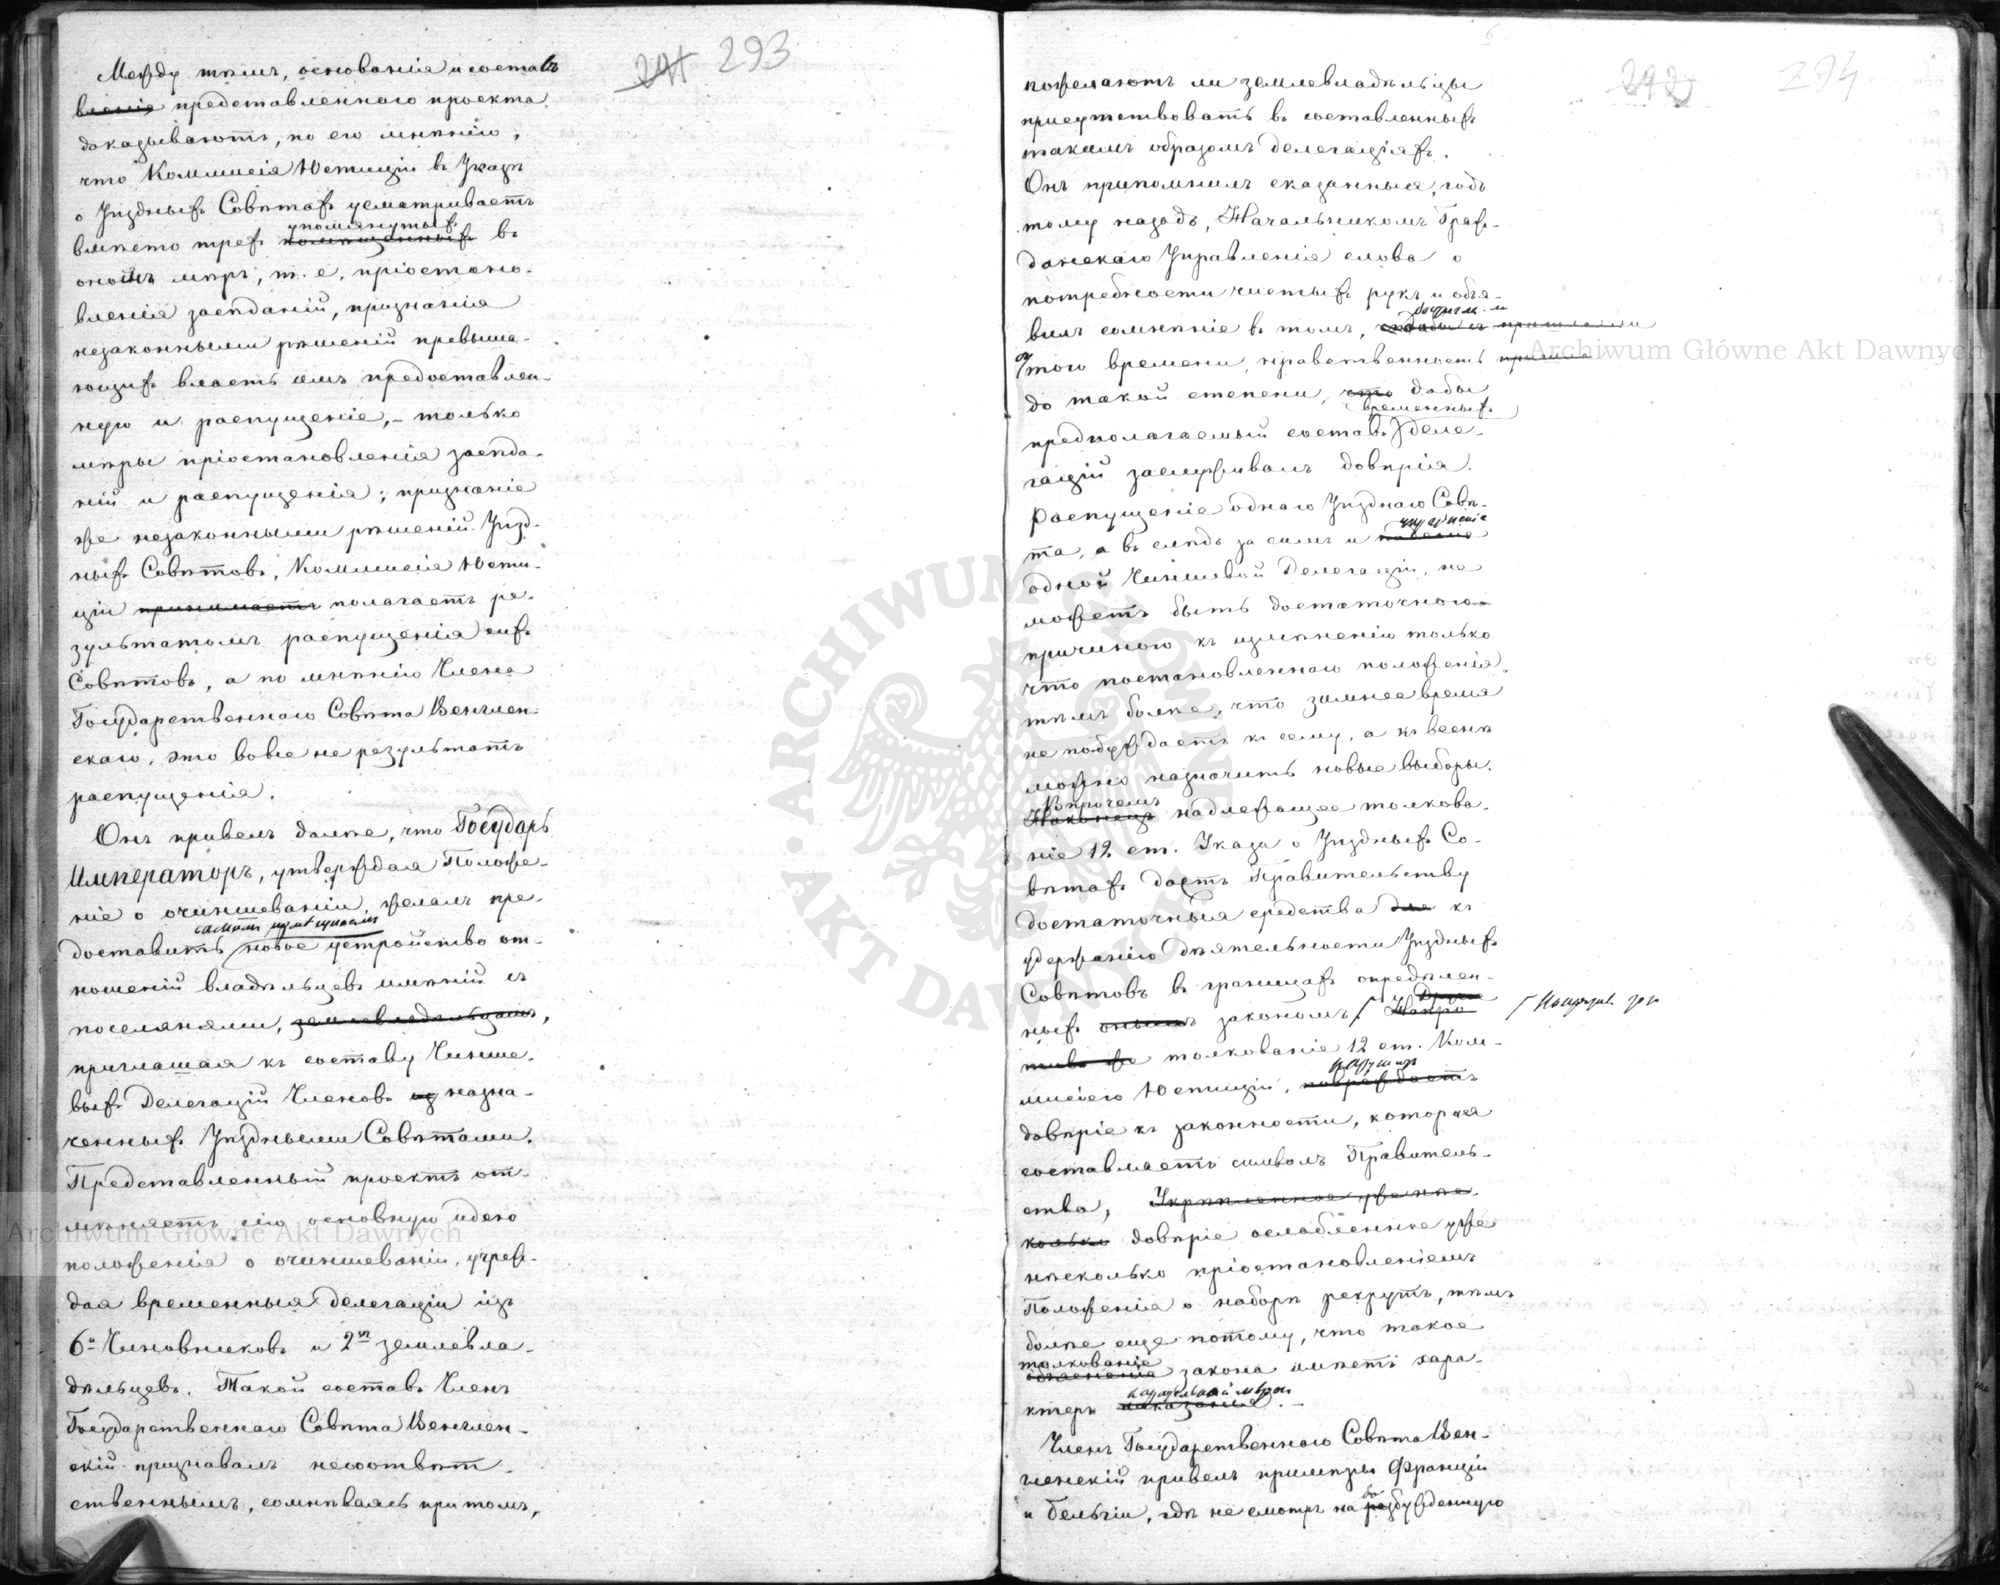 291 293
Между тѣмъ, основанія и составъ
вленія представленнаго проекта
доказываютъ, по его мнѣнію,
что Коммисія Юстиціи въ Указѣ
о Уѣздныхъ Совѣтахъ усматриваетъ
упомянутыхъ
вмѣсто трехъ въ
ономъ мѣръ, т. е. пріостано-
вленія засѣданій, признанія
незаконными рѣшеній превыша-
ющихъ власть имъ предоставлен-
ную и распущеніе, – только
мѣры пріостановленія засѣда-
ній и распущенія; признаніе
же незаконными рѣшеній Уѣзд-
ныхъ Совѣтовъ, Коммисія Юсти-
ціи принимаетъ полагаетъ ре-
зультатомъ распущенія сихъ
Совѣтовъ, а по мнѣнію Члена
Государственнаго Совѣта Венглен-
скаго, это вовсе не результатъ
распущенія.
Онъ привелъ далѣе, что Государь
Императоръ, утверждая Положе-
ніе о очиншеваніи, желалъ пре-
самимъ
доставить новое устройство от-
ношеній владѣльцевъ имѣній съ
поселянами, землевладѣльцамъ,
приглашая къ составу Чинше-
выхъ Делегацій Членовъ из назна-
ченныхъ Уѣздными Совѣтами.
Представленный проектъ от-
мѣняетъ сію основную идею
положенія о очиншеваніи, учреж-
дая временныя делегаціи изъ
6и Чиновниковъ и 2хъ землевла-
дѣльцевъ. Такой составъ Членъ
Государственнаго Совѣта Венглен-
скій признавалъ несоотвѣт-
ственнымъ, сомнѣваясь при томъ,
292 294
пожелаютъ ли землевладѣльцы
присутствовать въ составленныхъ
такимъ образомъ делегаціяхъ.
Онъ припомнилъ сказанныя, годъ
тому назадъ, Начальникомъ Граж-
данскаго Управленія слова о
потребности чистыхъ рукъ и объя-
вилъ сомнѣніе въ томъ,
того времени, нравственность
до такой степени, что дабы
временныхъ
предполагаемый составъ деле-
гацій заслуживалъ довѣрія.
Распущеніе однаго Уѣзднаго Совѣ-
та, а въ слѣдъ за симъ и
одной Чиншевой Делегаціи, не
можетъ быть достаточною
причиною къ измѣненію только
что постановленнаго положенія,
тѣмъ болѣе, что зимнее время
не побуждаетъ къ сему, а къ веснѣ
можно назначить новые выборы.
Впрочемъ
Наконецъ надлежащее толкова-
ніе 12 ст. Указа о Уѣздныхъ Со-
вѣтахъ дастъ Правительству
достаточныя средства для къ
удержанію дѣятельности Уѣздныхъ
Совѣтовъ въ границахъ опредѣлен-
ныхъ онымъ закономъ
тивъ же толкованіе 12 ст. Ком-
мисіею Юстиціи, повреждаетъ
довѣріе къ законности, которая
составляетъ символъ Правитель-
ства, Укрѣпленное уже нѣс-
колько довѣріе ослабленное уже
нѣсколько пріостановленіемъ
Положенія о наборѣ рекрутъ, тѣмъ
болѣе еще потому, что такое
толкованіе
объясненіе закона имѣетъ хара-
карательной мѣры
ктеръ наказанія. –
Членъ Государственнаго Совѣта Вен-
гленскій привелъ примѣры Франціи
и Бельгіи, гдѣ не смотря на возбужденную
Archiwum Główne Akt Dawnych
Archiwum Główne Akt Dawnych
ARCHIWUM GŁÓWNE
AKT DAWNYCH